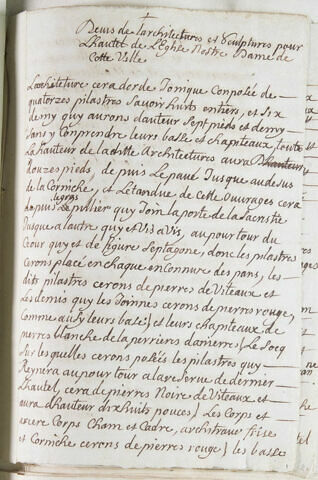 Devis de larchitectures et Sculptures pour
Lhautel de LEglise Nostre Dame de
Cette Ville
Larchiteture cera dordre Ionique Conposée de
quatorzes pilastres Savoir huit entiers, et Six
demy quy aurons dauteur Sept pieds et demy
Sans y Conprendre leurs basse et chapiteaux, toute
La hauteur de laditte Architectures aura Dhauteur
douzes pieds, de puis Le pavé Jusque au desus
de la Corniche, et Létandue de Cette Ouvrages cera
depuis le gros pillier quy Join la porte de la Sacristie
Jusque a lautre quy est Vis a Vis, au pour tour du
Cœur quy est de figure Septagone, donc les pilastres
Cerons placé en chaque enConnure des pans, les
dits pilastres cerons de pierres de Viteaux et
Les demis quy les Joinnes cerons de pierres rouge,
Comme aussy leurs base} et leurs chapiteaux de
pierres blanche de la perriere dasniere} Le Socq
Sur lesquelles cerons posées les pilastres quy
Reynera au pour tour a la reserve de dernier
Lhautel, cera de pierres Noire de Viteaux et
aura dhauteur dix huits pouces} Les Corps et
arriere Corps Cham et Cadre, architrave frise
et Corniche cerons de pierres rouge} les basse